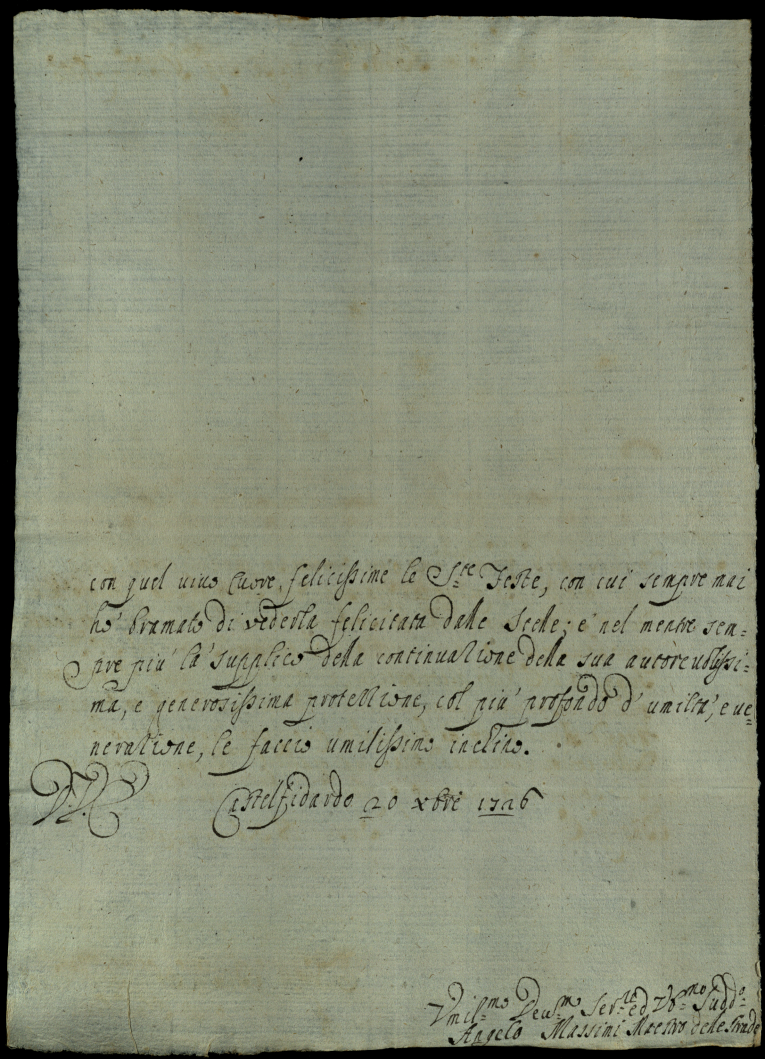 con quel uiuo Cuore, felicissime le S.te Feste, con cui sempre mai
hò bramato di vederla felicitata dalle Stelle; e nel mentre sem=
pre più la supplico della continuatione della sua autoreuolissi=
ma, e generosissima protettione, col più profondo d'umiltà, e ue=
neratione, le faccio umilissimo inchino.
Castelfidardo 20 xbre 1726
Vmil.mo Deu.mo Ser.re ed Vb.mo Sudd.o
Angelo Massimi Maestro delle Strade